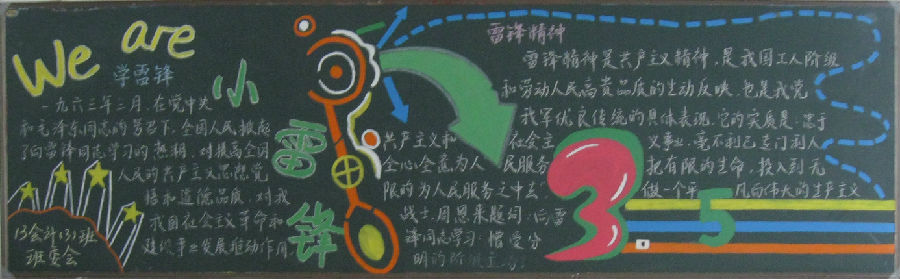 We are
小
雷
锋
学雷锋
一九六三年三月,在党中央
和毛泽东同志的号召下,全国人民掀起
了向雷锋同志学习的热潮,对提高全国
人民的共产主义思想觉
悟和道德品质,对我
我国在社会主义革命和
建设事业发展推动作用
13会计(3)班
班委会
雷锋精神
雷锋精神是共产主义精神,是我国工人阶级
和劳动人民高贵品质的生动反映,也是我党
我军优良传统的具体表现,它的实质是:忠于
共产主义和 在会主 义事业,毫不利己专门利人
全心全意为人 民服务 把有限的生命,投入到无
限的为人民服务之中去 做一个平 凡而伟大的共产主义
战士.周恩来题词:向雷
锋同志学习:憎爱分
明的阶级立
3.5